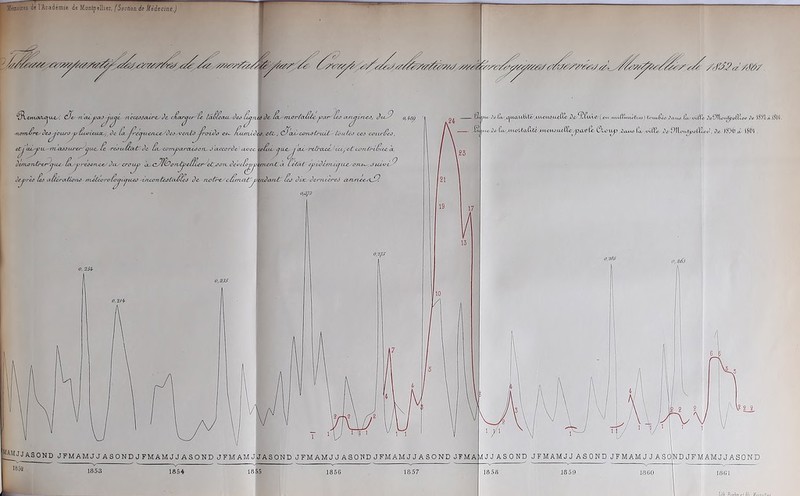 Mémoires de l'Académie de Montpellier. (Section de Médecine.)
Tableau comparatif des courbes de la mortalité par le Croup, et des altérations météorologiques observées à Montpellier de 1852 à 1861.
Remarque. Je n'ai pas jugé nécessaire de charger le tableau des lignes de la mortalité par les angines, du
nombre des jours pluvieux, de la fréquence des vents froids et humides, etc. J'ai construit toutes ces courbes,
et j'ai pu m'assurer que le résultat de la comparaison s'accorde avec celui que j'ai retracé ici, et contribue à
démontrer que la présence du croup à Montpellier et son développement à l'état épidémique ont suivi
de près les altérations météorologiques incontestables de notre climat pendant les dix dernières années.
Ligne de la quantité mensuelle de Pluie (en millimètres) tombée dans la ville de Montpellier de 1852 à 1861.
Ligne de la mortalité mensuelle par le Croup dans la ville de Montpellier, de 1852 à 1861.
24
23
21
19
17
13
10
7
4
4
4
6 6
MAMJJASOND JFMAMJJASOND JFMAMJJASOND JFMAMJJASOND JFMAMJJASOND JFMAMJJASOND JFMAMJJASOND JFMAMJJASOND JFMAMJJASOND JFMAMJJASOND
1852 1853 1854 1855 1856 1857 1858 1859 1860 1861